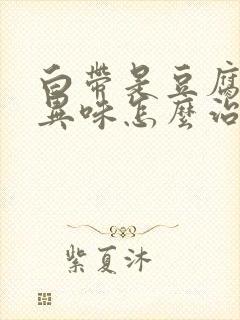 白帶是豆腐
異味怎麼治
紫夏沐